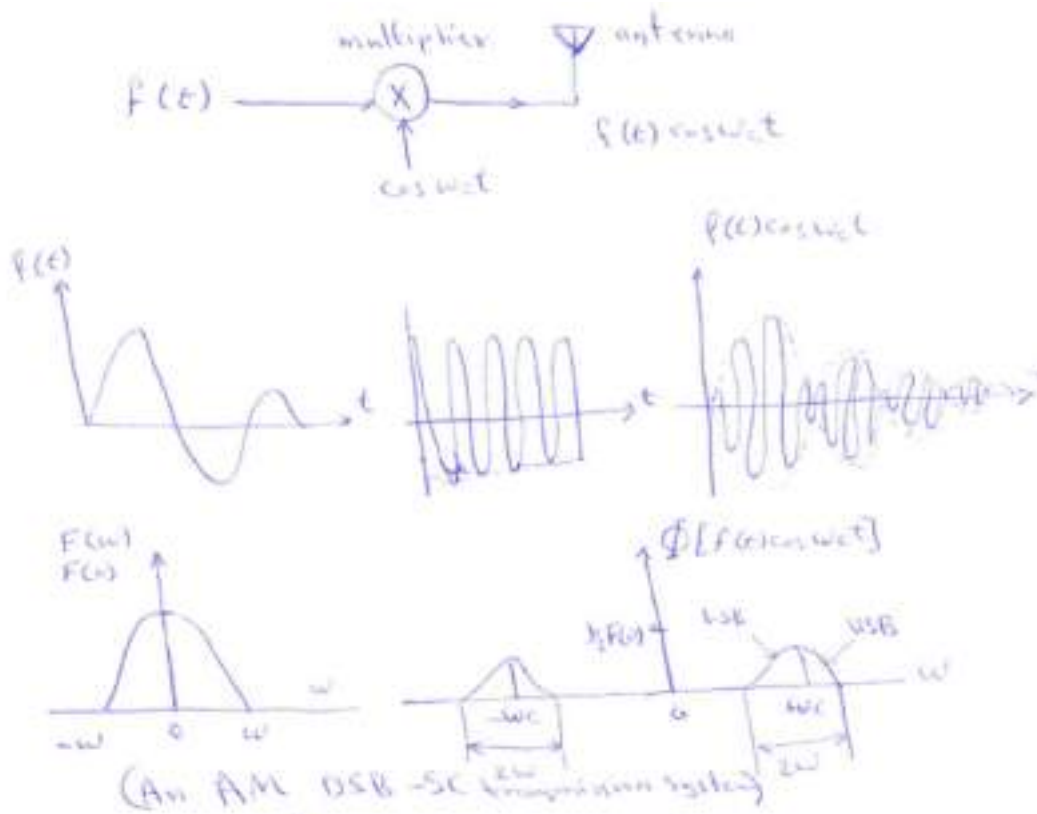 multiplier antenna
f(t) X
f(t) cos wct
cos wct
f(t) cos wct
f(t)
t t
F(w) Φ[f(t) cos wct]
F(o)
½F(o) LSB USB
w w
-w 0 w -wc 0 +wc
2w 2w
(An AM DSB-SC transmission system)